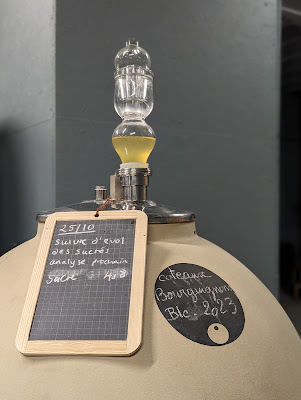 25/10
suivre d'evol
des sucrés
analyse prochain
sucre
coteaux
Bourguignons
Blc. 2023